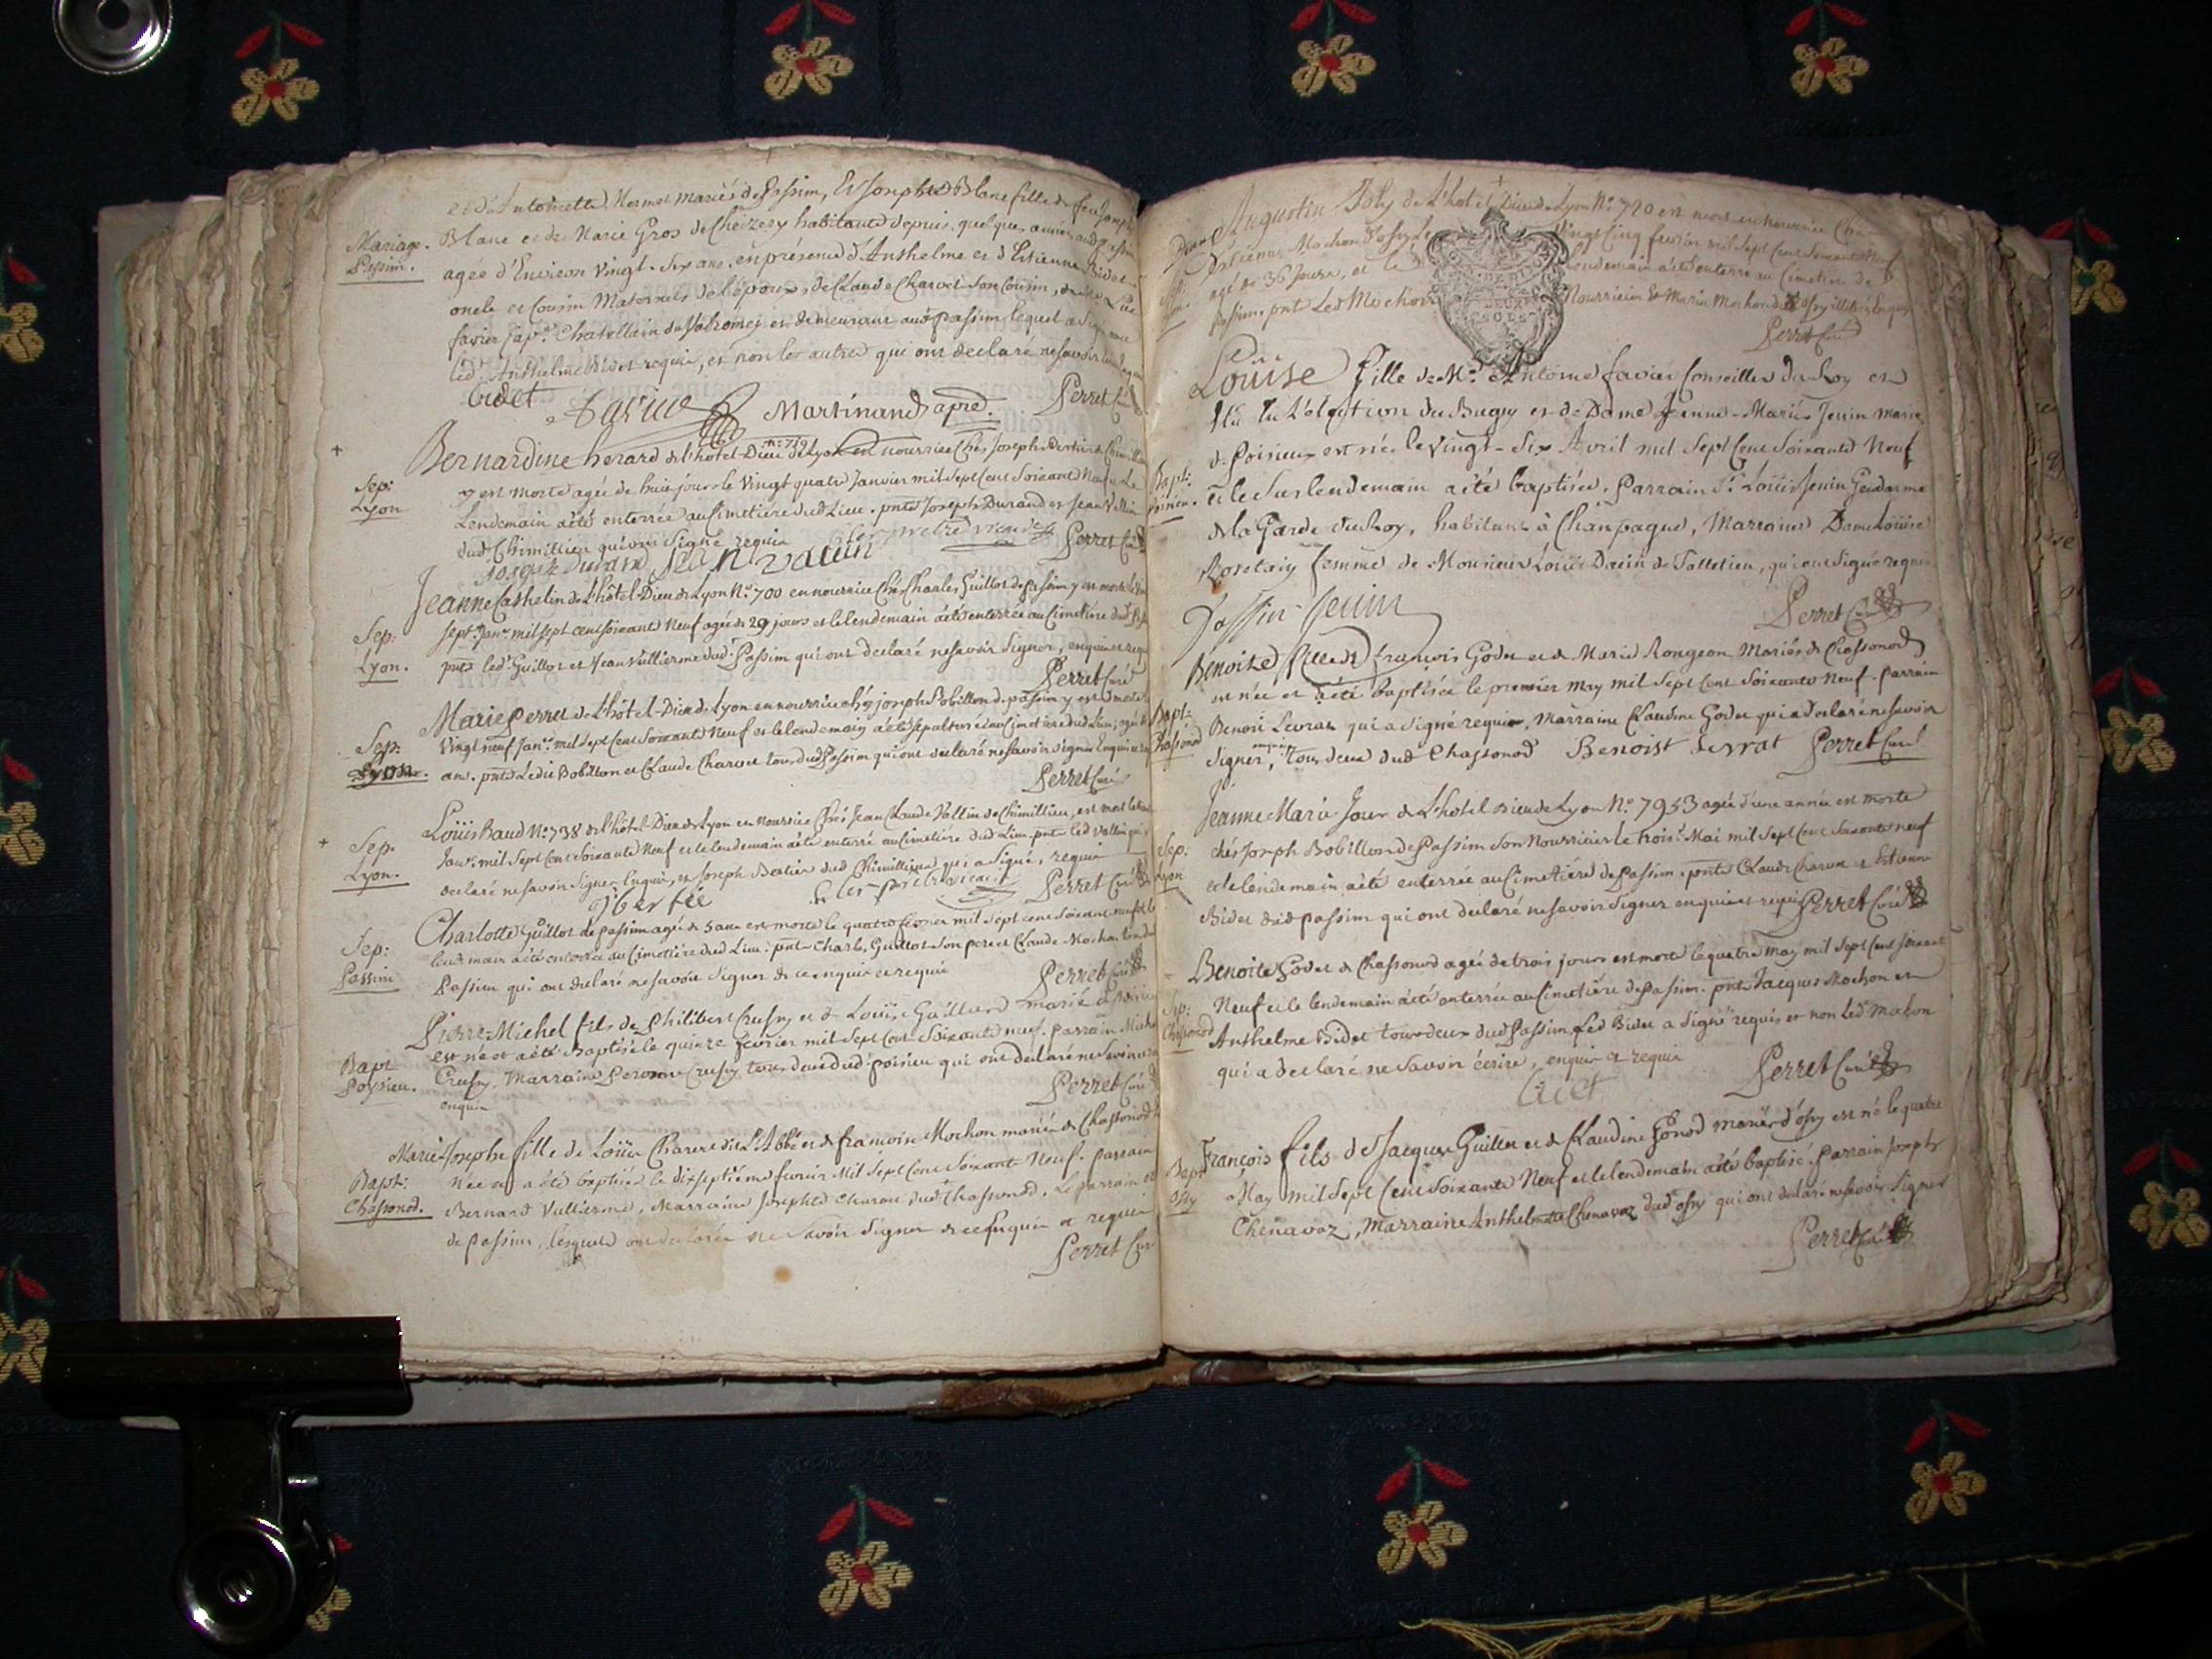 et d'Antoinette Mermet mariés de Passim, et Josephte Blanc fille de feu Joseph
Mariage. Blanc et de Marie Gros de Cheizery habitante depuis quelques années aud. Passim
Passim. agée d'Environ vingt-six ans. en présence d'Anthelme et d'Etienne Bidet
oncle et Cousin Maternels de l'époux, de Claude Charvet son Cousin, de
favier Chatellain de Valromey et demeurant aud. passim lequel a signé avec
led. Anthelme Bidet requis, et non les autres qui ont declaré ne savoir
Bidet Favier Martinand Perret Curé
Bernardine herard de l'hôtel-Dieu de Lyon N° 719 en nourrice Chés Joseph
Sep: y est morte agée de huit jours le vingt quatre Janvier mil sept cent soixante Neuf et le
Lyon Lendemain a été enterrée au Cimetière dud Lieu. pnts Joseph Durand et Jean Vallin
dud Chimillieu qui ont signé requis
Joseph Durand Jean Vallin prêtre vicaire Perret Curé
Jeanne Cathelin de l'hôtel-Dieu de Lyon N° 700 en nourrice Chés Charles Guillot de Passim y est morte le
Sep: sept Janv. mil sept cent soixante Neuf agée de 29 jours et le lendemain a été enterrée au Cimetière dud
Lyon. pnts led. Guillot et Jean Vullierme dud. Passim qui ont declaré ne savoir signer, enquis et requis
Perret Curé
Marie Perret de L'hôtel-Dieu de Lyon en nourrice chés joseph Bobillon de passim y est morte
Sep: vingt neuf Janv. mil sept cent soixante Neuf et le lendemain a été sépulturée au Cimetière dud Lieu, agée
Lyon. an. pnts Ledit Bobillon et Claude Charvet tous dud Passim qui ont declaré ne savoir signer Enquis
Perret Curé
Louis Baud N° 738 de l'hôtel-Dieu de Lyon en nourrice Chés Jean Claude Vallin de Chimillieu, est mort le
Sep. Janv. mil sept cent soixante Neuf et le lendemain a été enterré au Cimetière dud Lieu. pnts led Vallin qui a
Lyon. declaré ne savoir signer Enquis, et Joseph Bertier dud Chimillieu qui a signé, requis
prêtre vicaire Perret Curé
Charlotte Guillot de passim agée de 5 ans est morte le quatre fevrier mil sept cent soixante neuf et le
Sep: lendemain a été enterrée au Cimetière dud Lieu. pnts Charles Guillot son pere et Claude Mochon tous de
Passim Passim qui ont declaré ne savoir signer de ce enquis et requis
Perret Curé
Pierre-Michel fils de Philibert Crusy et de Louise Gaillard mariés à poisieu
Bapt est né et a été Baptisé le quinze fevrier mil sept cent soixante neuf. parrain Michel
Poysieu. Crusy. Marraine Peronne Crusy tous deux dud. poisieu qui ont declaré ne savoir
enquis Perret Curé
Marie-Josephe fille de Louis Charvet dit L'Abbé et de françoise Mochon mariés de Chassonod
Bapt: née et a été baptisée le dixseptième fevrier Mil sept cent soixante Neuf. parrain
Chassonod. Bernard Vullierme, Marraine Josephte Charvet dud Chassonod. Le parrain
de passim, lesquels ont declaré ne savoir signer de ce Enquis et requis
Perret Curé
Augustin Joly de L'hôtel Dieu de Lyon N° 720 est mort en nourrice Chés
Etienne Mochon d'ossy le vingt Cinq fevrier mil sept cent soixante Neuf
agé de 36 jours, et le lendemain a été enterré au Cimetière de
Passim, pnts Led Mochon Nourricier et Marin Mochon d'ossy illitérés Enquis
Perret Curé
Louise fille de Mr. Antoine favier Conseiller du Roy et
Elu en L'election du Bugey et de Dame Jeanne-Marie Jenin mariés
de Poisieux est née le vingt-six Avril mil sept cent soixante Neuf
Bapt: et le surlendemain a été baptisée. Parrain Sr. Louis Jenin Gendarme
Poisieu. de la Garde du Roy, habitant à Champagne, Marraine Dame Louise
femme de Monsieur Louis de Talletieu, qui ont signé requis
Jenin Perret Curé
Benoite fille de françois Godet et de Marie Rongeon Mariés de Chassonod
Bapt: est née et a été baptisée le premier May mil sept cent soixante Neuf. parrain
Chassonod Benoit Levrat qui a signé requis, Marraine Claudine Godet qui a declaré ne savoir
signer, enquis tous deux dud Chassonod Benoist Levrat Perret Curé
Jeanne Marie Jour de L'hotel Dieu de Lyon N° 7953 agée d'une année est morte
Sep: chés Joseph Bobillon de Passim son Nourricier le trois Mai mil sept cent soixante neuf
Lyon et le lendemain a été enterrée au Cimetière de Passim. pnts Claude Charvet et Etienne
Bidet dud passim qui ont declaré ne savoir signer enquis et requis Perret Curé
Benoite Godet de Chassonod agée de trois jours est morte le quatre May mil sept cent soixante
Sep: Neuf et le lendemain a été enterrée au Cimetière de Passim. pnts Jacques Mochon et
Chassonod Anthelme Bidet tous deux dud Passim, Led Bidet a signé requis et non Led Mochon
qui a declaré ne savoir écrire, enquis et requis
Bidet Perret Curé
François fils de Jacques Guillet et de Claudine Gonod mariés d'ossy est né le quatre
Bapt May mil sept cent soixante Neuf et le lendemain a été baptisé. Parrain Joseph
Ossy Chenavaz, Marraine Anthelmette Chenavaz dud ossy qui ont declaré ne savoir signer
Perret Curé